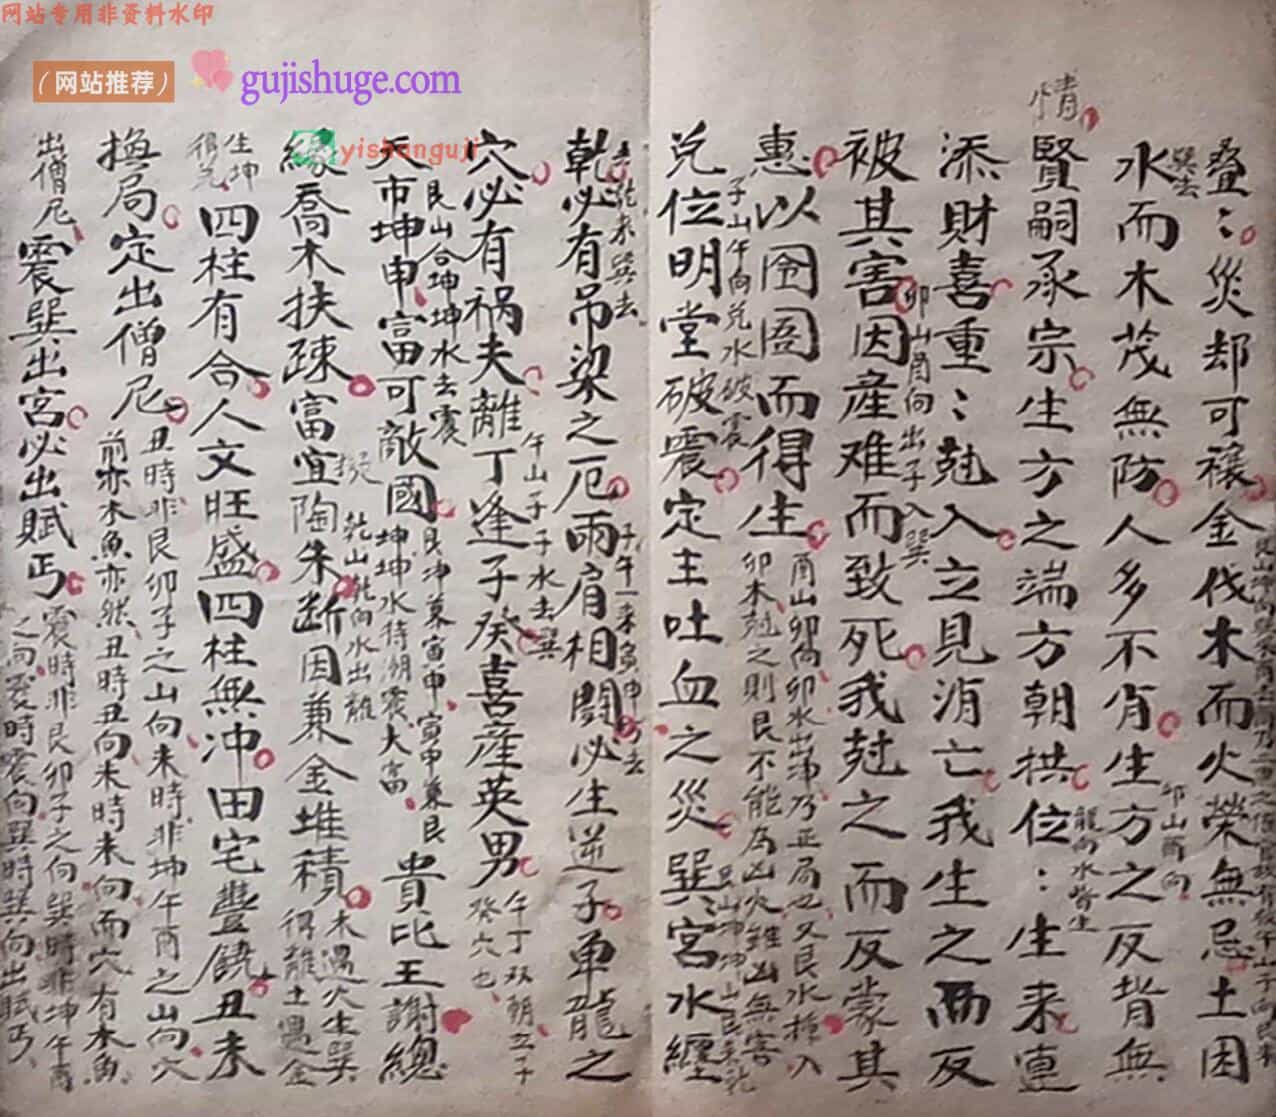 网站专用非资料水印
（网站推荐）
gujishuge.com
yishanguji
叠：災却可禳金伐木而火荣無忌土困
水而木茂無防人多不肖生方之反背無
巽去
卯山酉向
情
賢嗣承宗生方之端方朝拱位：生来連
龍向水皆生
添財喜重：尅入立見消亡我生之而反
被其害因産难而致死我尅之而反蒙其
卯山酉向出子入巽
惠以囹圄而得生
酉山卯向卯水出沖乃正局也又艮水摧入
卯木尅之則艮不能為凶火雖凶無害
子山午向兑水破震
兑位明堂破震定主吐血之災巽宮水纏
乾必有吊梁之厄兩肩相鬪必生逆子单龍之
乾来巽去
穴必有祸夫離丁逢子癸喜産英男
午山子子水去巽
午丁双朝立子
癸穴也
艮山合坤坤水去震
天市坤申富可敵國
坤坤水待朝震大富
寅申兼艮
貴比王謝總
緣喬木扶疎富宜陶朱断因兼金堆積
乾山乾向水出離
木遇火生巽
得離土遇金
生坤
得兑
四柱有合人文旺盛四柱無冲田宅豐饒丑未
換局定出僧尼
丑時非艮卯子之山向未時非坤午酉之山向穴
前亦木魚亦然丑時丑向未時未向而穴有木魚
出僧尼
震巽出宮必出賦丐
震時非艮卯子之向巽時非坤午酉
之向震時震向巽時巽向出賦丐